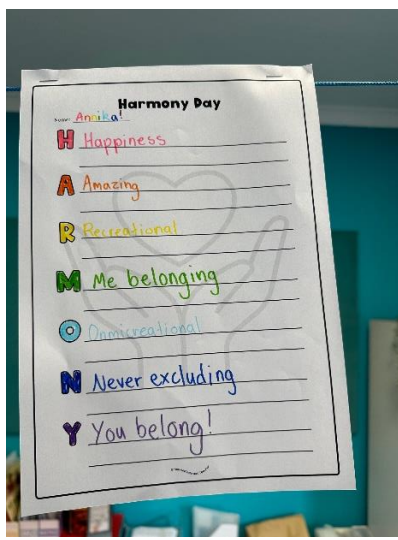 Harmony Day
Name: Annika!
H Happiness
A Amazing
R Recreational
M Me belonging
O Onmicreational
N Never excluding
Y You belong!